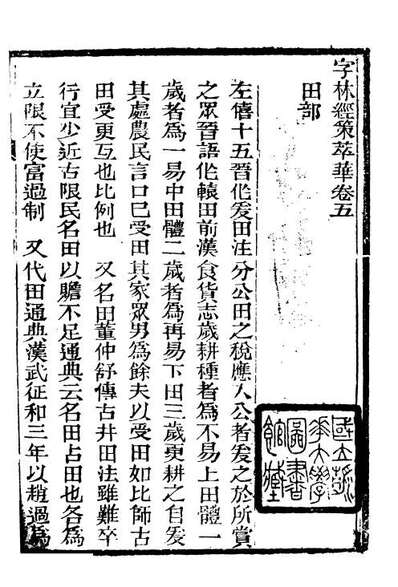 字林經策萃華卷五
田部
左僖十五晉作爰田注分公田之稅應入公者爰之於所賞
之眾晉語作轅田前漢食貨志歲耕種者爲不易上田體一
歲者爲一易中田體二歲者爲再易下田三歲更耕之自爰
其處農民言口已受田其家眾男爲餘夫以受田如比師古
田受更互也比例也 又名田董仲舒傳古井田法雖難卒
行宜少近古限民名田以贍不足通典云名田占田也各爲
立限不使富過制 又代田通典漢武征和三年以趙過爲
國立清
華大學
圖書
館藏